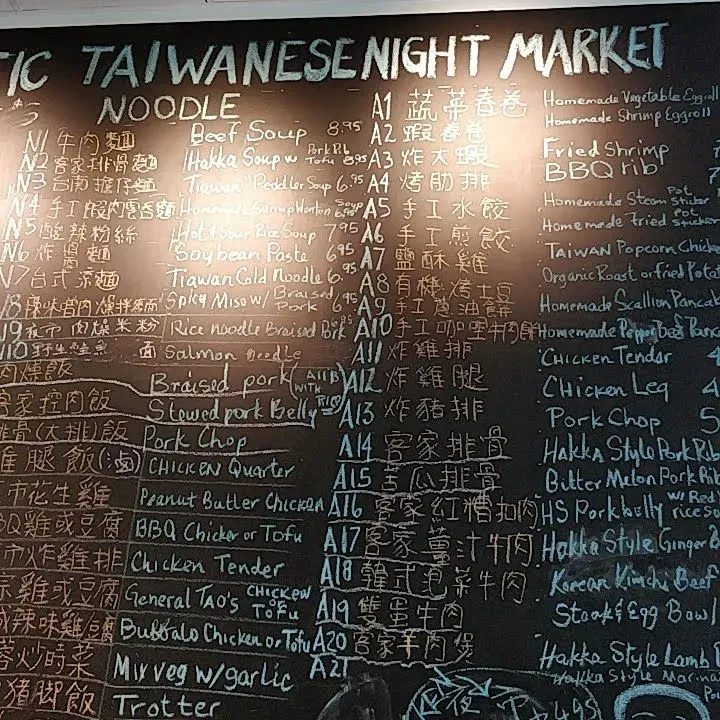 TIC TAIWANESE NIGHT MARKET
NOODLE
N1 牛肉麵 Beef Soup 8.95
N2 客家排骨麵 Hakka Soup w Pork Rib Tofu 8.95
N3 台南擔仔麵 Tiawan "Peddler Soup 6.95
N4 手工蝦肉雲吞麵 Homemade Shrimp Wonton Soup
N5 酸辣粉絲 Hot & Sour Rice Soup 7.95
N6 炸醬麵 Soybean Paste 6.95
N7 台式涼麵 Tiawan Cold Noodle 6.95
N8 辣味噌肉燥拌麵 Spicy Miso w/ Braised Pork 6.95
N9 夜市肉燥米粉 Rice noodle Braised Pork
N10 野生鮭魚 面 Salmon noodle
肉燥飯 Braised pork (All B WITH RICE)
客家控肉飯 Stewed pork Belly
排骨(大排)飯 Pork Chop
雞腿飯(滷) CHICKEN Quarter
市花生雞 Peanut Butler Chicken
BQ雞或豆腐 BBQ Chicken or Tofu
市炸雞排 Chicken Tender
宗雞或豆腐 General Tao's CHICKEN TOFU
辣味雞/豆腐 Buffalo Chicken or Tofu
蓉炒時菜 Mix veg w/garlic
猪脚飯 Trotter
A1 蔬菜春卷 Homemade Vegetable Eggroll
A2 蝦春卷 Homemade Shrimp Eggroll
A3 炸大蝦 Fried Shrimp
A4 烤肋排 BBQ rib
A5 手工水餃 Homemade Steam Pot sticker
A6 手工煎餃 Homemade Fried Pot sticker
A7 鹽酥雞 TAIWAN Popcorn Chicke
A8 有機烤土豆 Organic Roast or Fried Potat
A9 手工蔥油餅 Homemade Scallion Pancak
A10 手工咖哩牛肉餅 Homemade Pepper Beef Panc
A11 炸雞排 CHICKEN Tendar 4
A12 炸雞腿 CHICKEN Leg 4
A13 炸豬排 Pork Chop 5
A14 客家排骨 HAKKA Style Pork Rib
A15 苦瓜排骨 Bitter Melon Pork Rib
A16 客家紅糟扣肉 HS Pork belly w/ Red rice sa
A17 客家薑汁牛肉 Hakka Style Ginger B
A18 韓式泡菜牛肉 Korean Kimchi Beef
A19 雙蛋牛肉 Steak & Egg Bowl
A20 客家羊肉煲 Hakka Style Lamb
A21 Hakka Style Marina